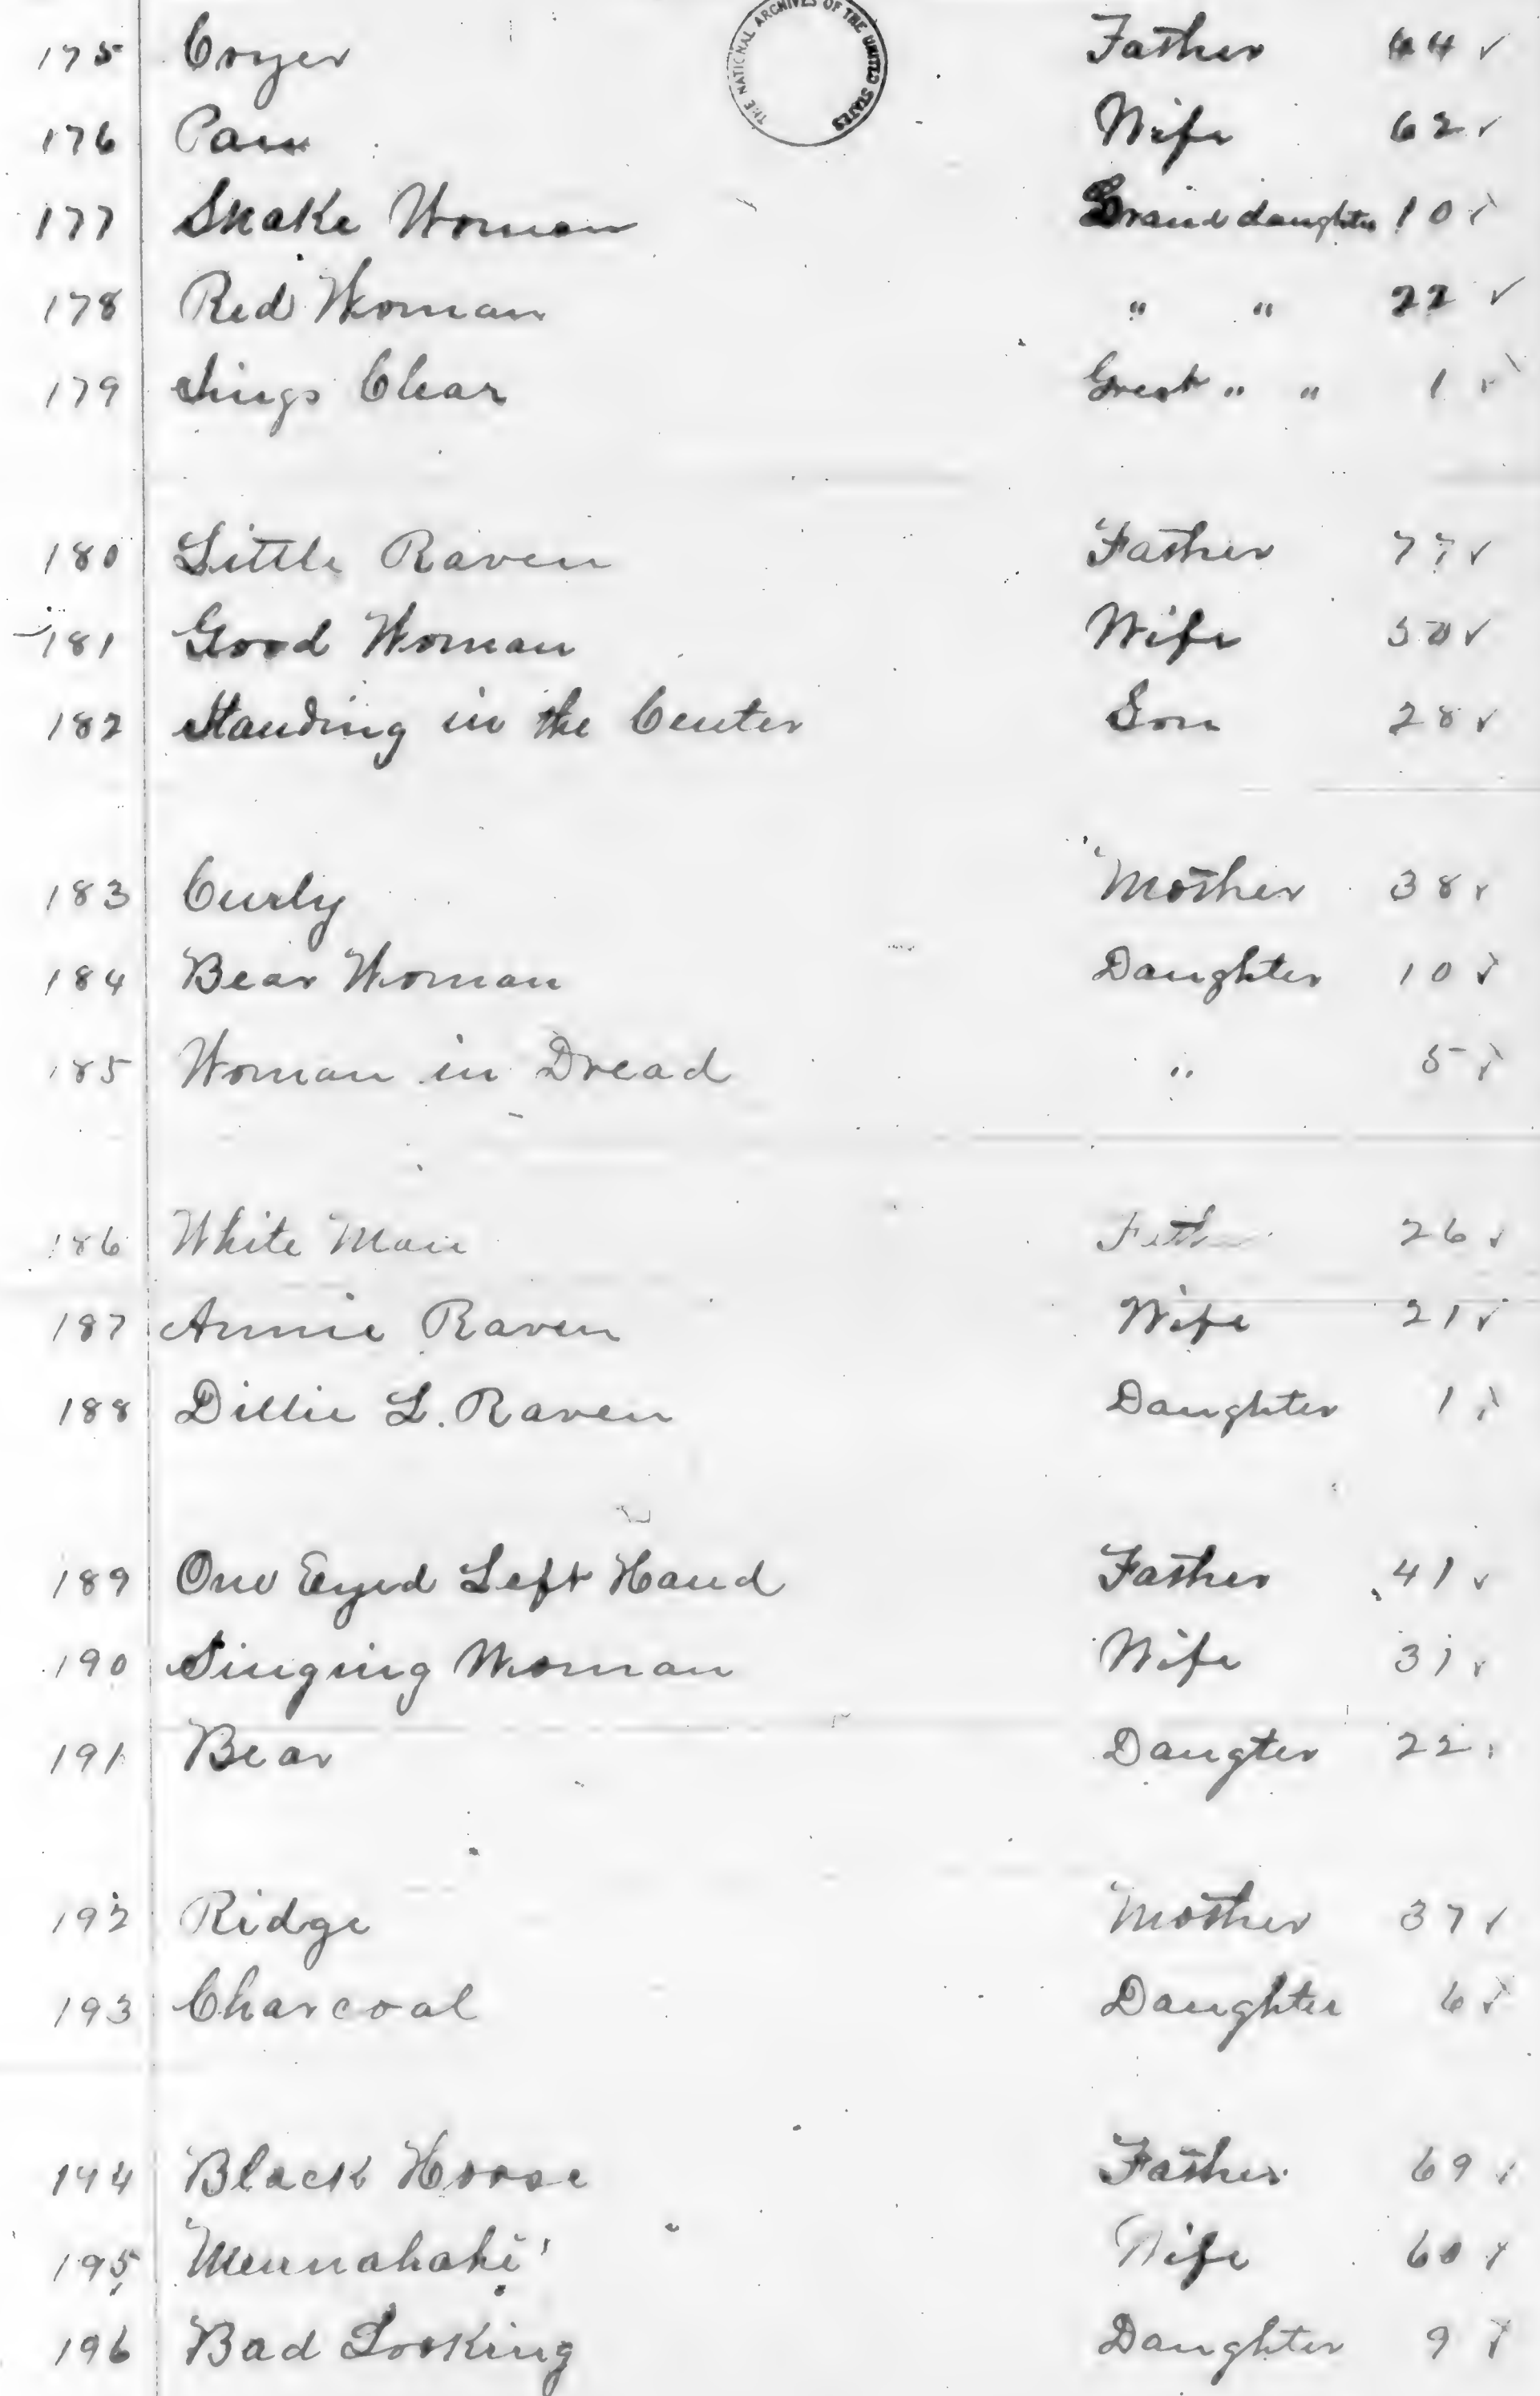 THE NATIONAL ARCHIVES OF THE UNITED STATES
175 Coryer Father 64 ✓
176 Paw Wife 62 ✓
177 Snake Woman Grand daughter 10 ✓
178 Red Woman " " 22 ✓
179 Sings Clear Great " " 1 ✓
180 Little Raven Father 77 ✓
181 Good Woman Wife 50 ✓
182 Standing in the Center Son 28 ✓
183 Curly Mother 38 ✓
184 Bear Woman Daughter 10 ✓
185 Woman in Dread " 5 ✓
186 White Man Father 26 ✓
187 Annie Raven Wife 21 ✓
188 Dillie L. Raven Daughter 1 ✓
189 One Eyed Left Hand Father 41 ✓
190 Singing Woman Wife 31 ✓
191 Bear Daugter 22 ✓
192 Ridge Mother 37 ✓
193 Charcoal Daughter 6 ✓
194 Black Horse Father 69 ✓
195 Wife 60 ✓
196 Bad Looking Daughter 9 ✓